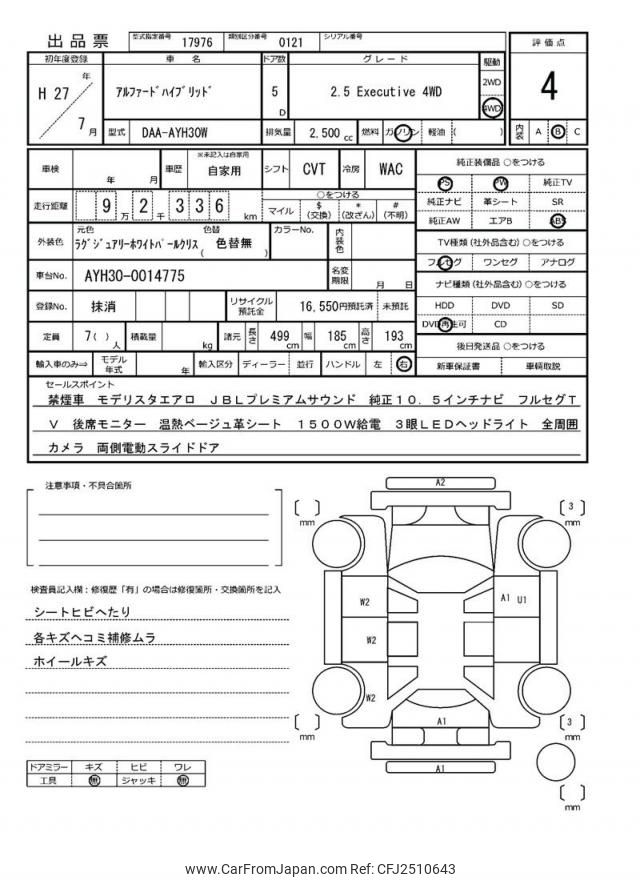 出品票 型式指定番号 17976 類別区分番号 0121 シリアル番号
初年度登録 車 名 ドア数 グレード 駆動 評価点
H 27 年 7 月 アルファードハイブリッド 5 D 2.5 Executive 4WD 2WD 4WD 4
型式 DAA-AYH30W 排気量 2,500 cc 燃料 ガソリン 軽油 ( ) 内装 A B C
車検 年 月 車歴 ※未記入は自家用 自家用 シフト CVT 冷房 WAC
純正装備品 ○をつける
PS PW 純正TV
純正ナビ 革シート SR
純正AW エアB ABS
走行距離 9 万 2 千 3 3 6 km
○をつける
マイル $ (交換) * (改ざん) # (不明)
外装色 元色 色替 ラグジュアリーホワイトパールクリス ( 色替無 ) カラーNo. 内装色
TV種類 (社外品含む) ○をつける
フルセグ ワンセグ アナログ
車台No. AYH30-0014775 名変期限 月 日
ナビ種類 (社外品含む) ○をつける
HDD DVD SD
DVD再生可 CD
登録No. 抹消 リサイクル預託金 16,550円預託済 未預託
定員 7( ) 人 積載量 kg 諸元 長さ 499 cm 幅 185 cm 高さ 193 cm
後日発送品 ○をつける
新車保証書 車輌取説
輸入車のみ⇒ モデル年式 年 輸入区分 ディーラー 並行 ハンドル 左 右
セールスポイント
禁煙車 モデリスタエアロ JBLプレミアムサウンド 純正10.5インチナビ フルセグT
V 後席モニター 温熱ベージュ革シート 1500W給電 3眼LEDヘッドライト 全周囲
カメラ 両側電動スライドドア
注意事項・不具合箇所
検査員記入欄：修復歴「有」の場合は修復箇所・交換箇所を記入
シートヒビヘたり
各キズヘコミ補修ムラ
ホイールキズ
ドアミラー キズ ヒビ ワレ
工具 無 ジャッキ 無
A2
[ ] mm
[ 3 ] mm
W2
A1 U1
W2
W2
A1
[ ] mm
[ 3 ] mm
A1
[ ] mm
www.CarFromJapan.com Ref: CFJ2510643